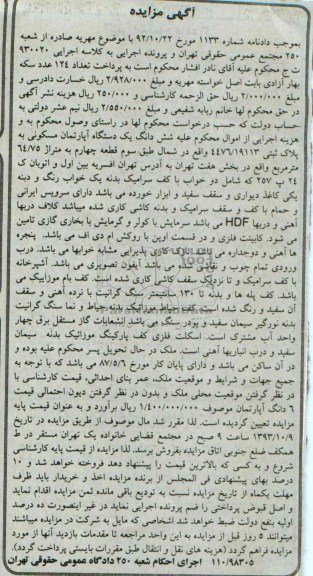 آگهی مزایده
بموجب دادنامه شماره ۱۱۳۳ مورخ ۹۲/۱۰/۲۲ با موضوع مهریه صادره از شعبه
۲۵۰ مجتمع عمومی حقوقی تهران و پرونده اجرایی به کلاسه اجرایی ۹۳۰۰۲۰
ت ج محکوم علیه آقای نادر افشار محکوم است به پرداخت تعداد ۱۲۴ عدد سکه
بهار آزادی بابت اصل خواسته مهریه و مبلغ ۲/۹۲۸/۰۰۰ ریال خسارت دادرسی و
مبلغ ۲/۰۰۰/۰۰۰ ریال حق الزحمه کارشناسی و ۲۵۰/۰۰۰ ریال هزینه نشر آگهی
در حق محکوم لها خانم ربابه شفیعی و مبلغ ۲/۵۵۰/۰۰۰ ریال نیم عشر دولتی به
حساب دولت که حسب درخواست محکوم لها در راستای وصول محکوم به و
هزینه اجرایی از اموال محکوم علیه شش دانگ یک دستگاه آپارتمان مسکونی به
پلاک ثبتی ۴۴۷۶/۱۹۱۱۳ واقع در شمال طبق سوم قطعه چهارم به متراژ ۶۴/۷۵
مترمربع واقع در بخش هفت تهران به آدرس تهران افسریه بین اول و اتوبان ک
۲۴ پ ۲۵۷ که شامل دو خواب با کف سرامیک بدنه یک خواب رنگ و دینه
یکی کاغذ دیواری و سقف سفید و ابزار خورده می باشد دارای سرویس ایرانی
و حمام با کف و سقف سرامیک و بدنه کاشی کاری شده میباشد کلاف دربها
آهنی و دربها HDF می باشد سرمایش با کولر و گرمایش با بخاری گازی تامین
می شود. کابینت فلزی و در قسمت اوپن با روکش ام دی اف می باشد. پنجره
ها آهنی و دوجداره می باشد نازک کاری پذیرایی مشابه خوابها می باشد. درب
ورودی تمام چوب و نقاشی شده می باشد آیفون تصویری می باشد. آشپزخانه
با کف سرامیک و تا نزدیک سقف کاشی کاری شده است. کف بام موزاییک می
باشد. کف پله ها و بدنه تا ۱۳۰ سانتیمتر سنگ گرانیت با نرده آهنی و سقف
آن سفید و رنگ شده است. کف حیاط موزائیک بدنه حیاط و نما سنگ گرانیت
بدنه نورگیر سیمان سفید و پودر سنگ می باشد انشعابات گاز مستقل برق چهار
واحد آب مشترک است. اسکلت فلزی کف پارکینگ موزائیک بدنه سیمان
سفید و درب انباریها آهنی است. ملک در حال تحویل پسر محکوم علیه بوده و
در آن ساکن می باشد و دارای پایان کار مورخ ۸۷/۵/۶ می باشد که با توجه به
جمیع جهات و شرایط و موقعیت ملک، عمر بنای احداثی، قیمت کارشناسی با
در نظر گرفتن موقعیت محلی ملک و بدون در نظر گرفتن دیون احتمالی قیمت
۶ دانگ آپارتمان موصوف ۱/۴۰۰/۰۰۰/۰۰۰ ریال برآورد و به عنوان قیمت پایه
مزایده تعیین گردیده است. لذا مقرر شد مال موصوف از طریق مزایده در تاریخ
۱۳۹۳/۱۰/۹ ساعت ۹ صبح در مجتمع قضایی خانواده یک تهران مستقر در ط
همکف ضلع جنوبی اتاق مزایده بفروش برسد. لذا مزایده از قیمت پایه کارشناسی
شروع و به کسی که بالاترین قیمت را پیشنهاد دهد فروخته خواهد شد و ۱۰
درصد بهای پیشنهادی فی المجلس از برنده مزایده اخذ و خریدار باید ظرف
مهلت یکماه از تاریخ مزایده نسبت به تودیع باقی مانده ثمن مزایده اقدام نماید
و اصل قبوض پرداختی را ضم پرونده اجرایی نماید در غیر اینصورت ده درصد
اولیه بنفع دولت ضبط خواهد شد اشخاصی که مایل به شرکت در مزایده میباشند
میتوانند ۵ روز قبل از مزایده به این واحد مراجعه تا مقدمات بازدید آنها از مورد
مزایده فراهم گردد (هزینه های نقل و انتقال طبق مقررات بایستی پرداخت گردد).
۱۱۰/۹۸۳۰۵ اجرای احکام شعبه ۲۵۰ دادگاه عمومی حقوقی تهران